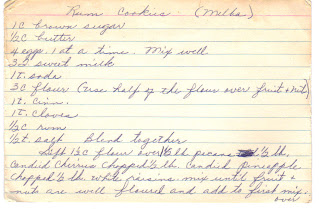 Rum Cookies (Melba)
1 C brown sugar
1/2 C butter
4 eggs. 1 at a time. Mix well
sweet milk
1 t. soda
3 C flour (Use half of the flour over fruit & nut)
1 t. Cinn.
1 t. Cloves
1/2 C rum
1/2 t. salt Blend together
Sift 1 1/2 C flour over 1/2 lb pecans 1/2 lb.
Candied Cherries chopped 1/2 lb. Candied pineapple
chopped 1/2 lb. white raisins mix until fruit &
nuts are well floured and add to first mix.
over